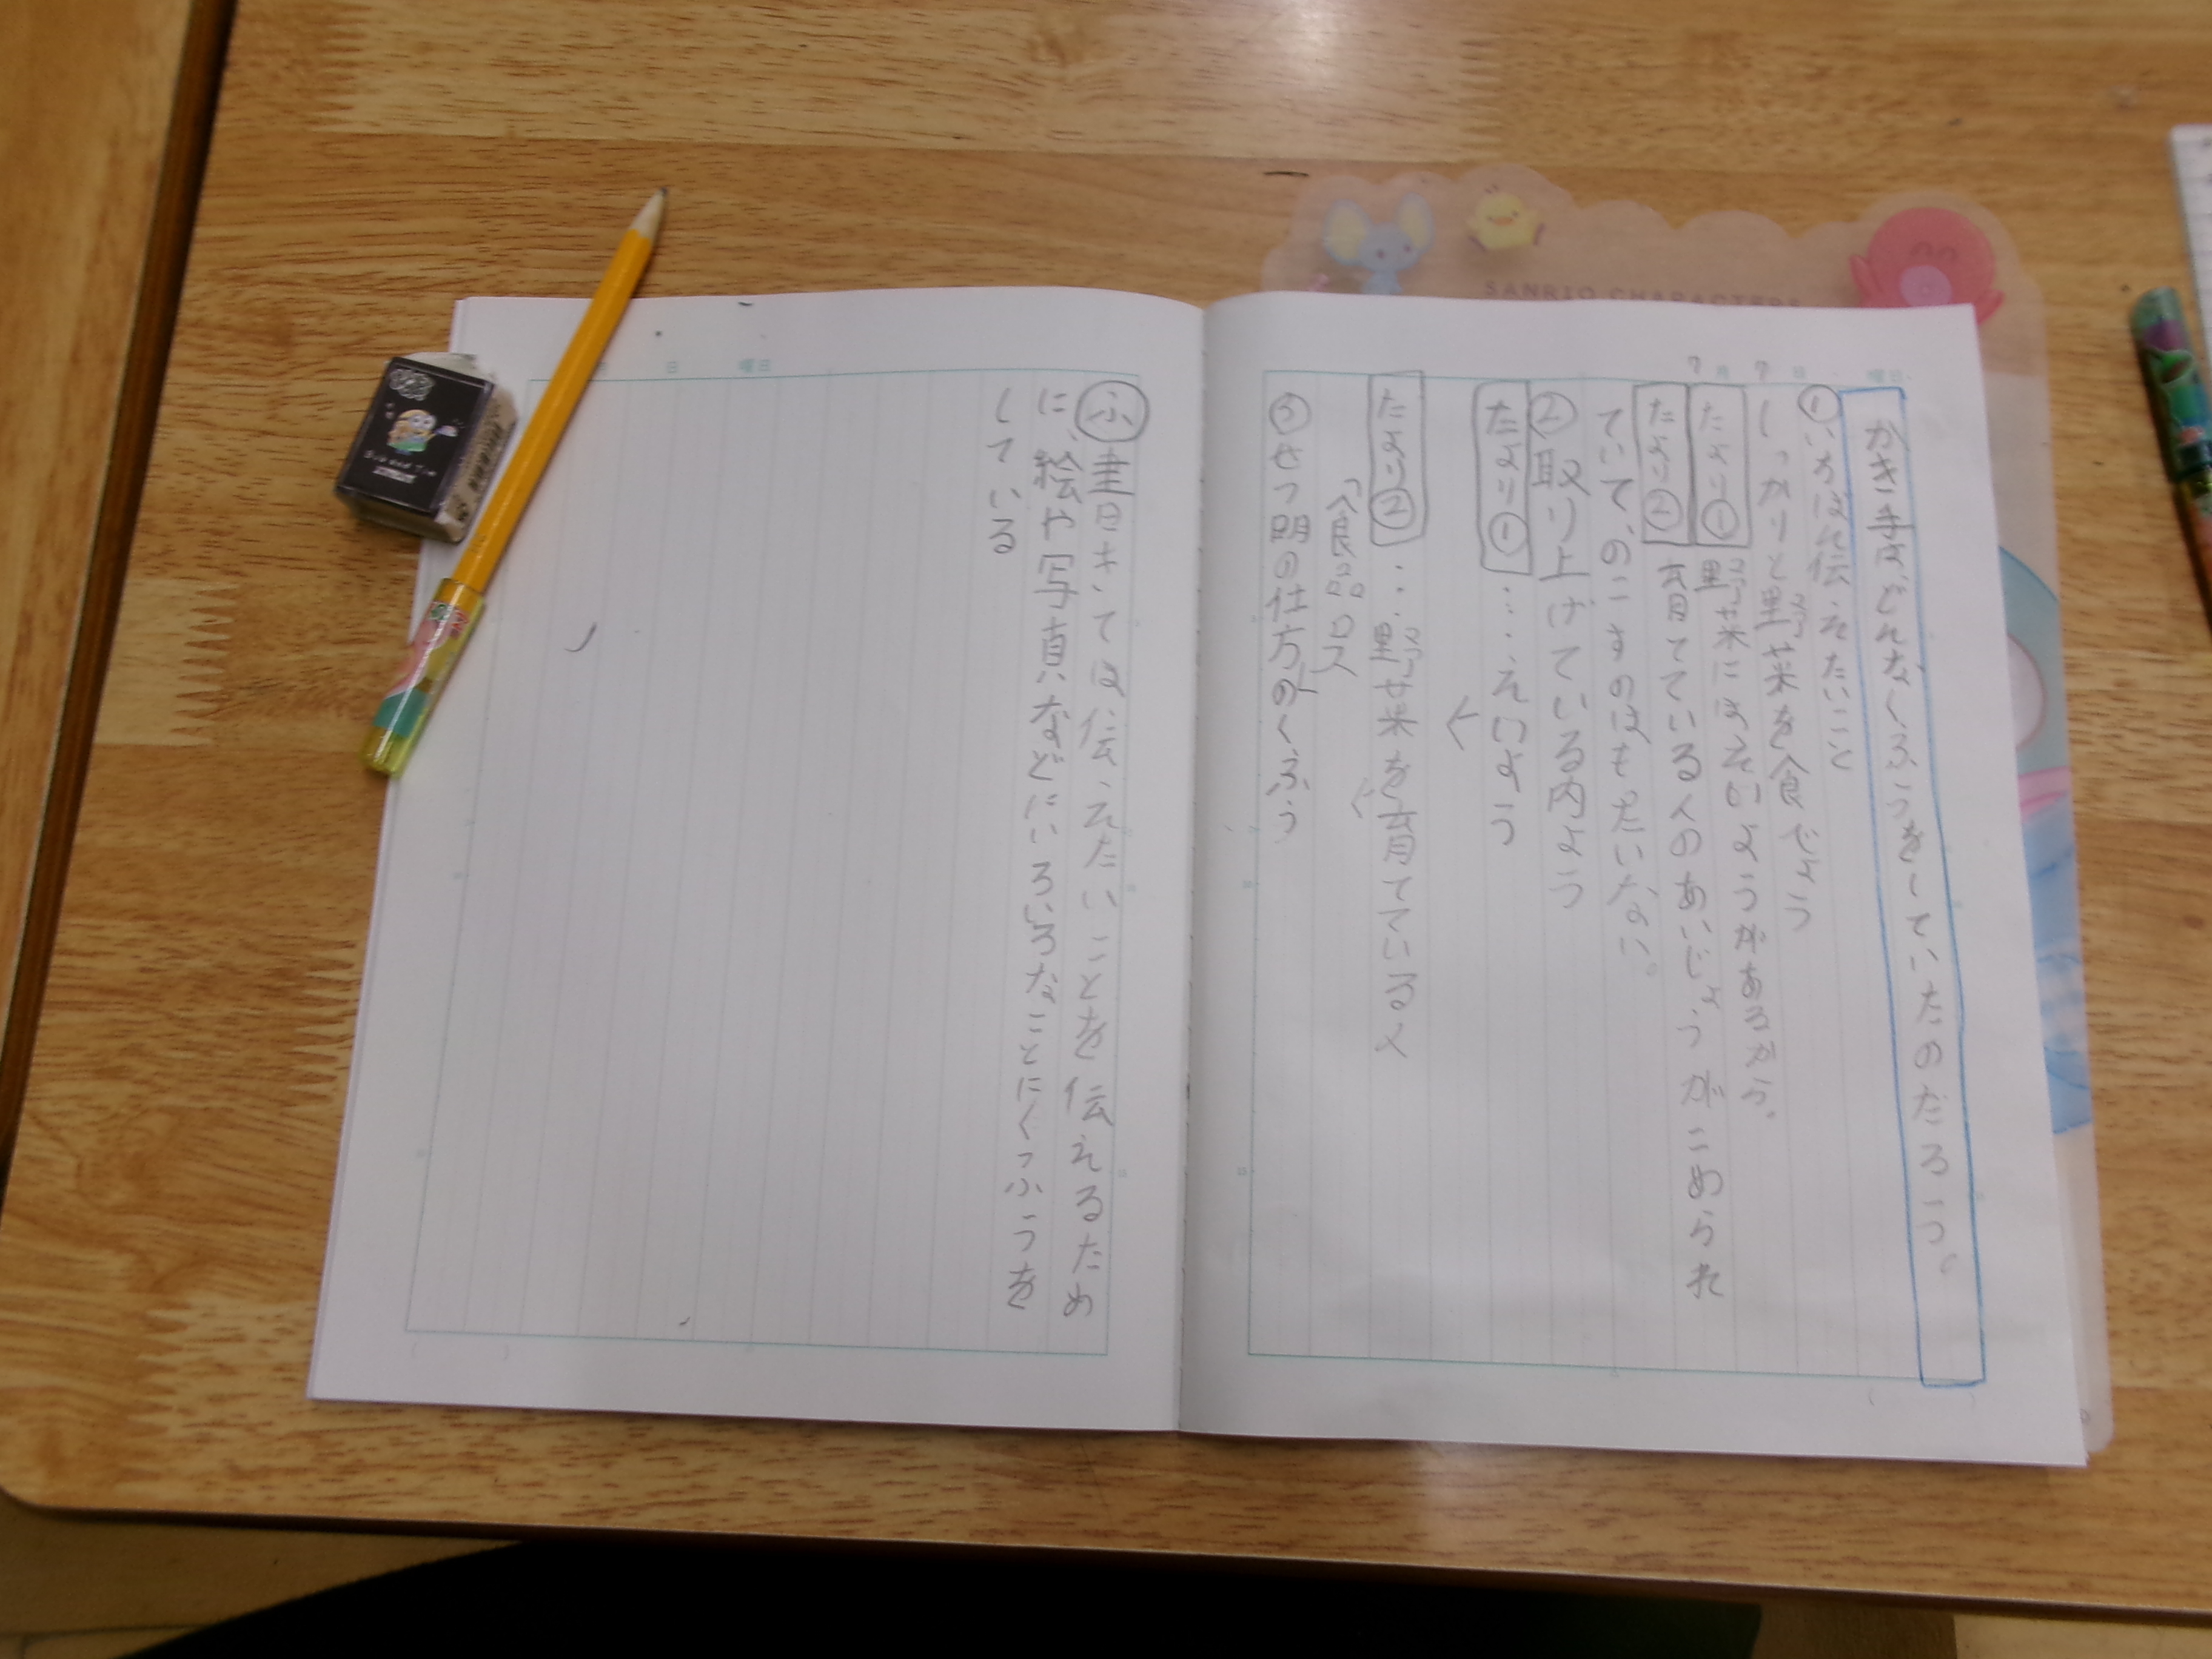 7月7日 曜日
かき手はどんなくふうをしていたのだろう。
①いちばん伝えたいこと
しっかりと野菜を食べよう
たより① 野菜にはえいようがあるから。
たより② 育てている人のあいじょうがこめられ
ていて、のこすのはもったいない。
②取り上げている内よう
たより①・・・えいよう
たより②・・・野菜を育てている人
「食品ロス」
③せつ明の仕方のくふう
ふ 書き手は伝えたいことを伝えるため
に、絵や写真などにいろいろなことにくふうを
している
月 日 曜日
SANRIO CHARACTERS